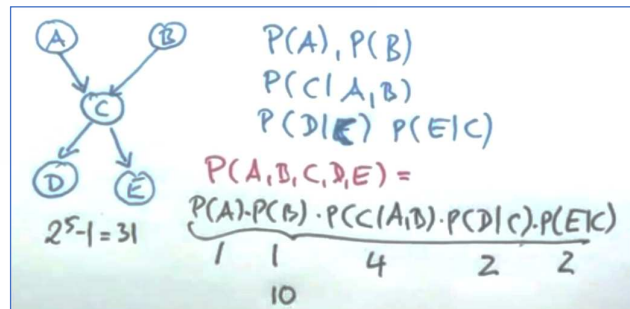 A
B
C
D
E
2⁵-1=31
P(A), P(B)
P(C|A,B)
P(D|C) P(E|C)
P(A,B,C,D,E) =
P(A)·P(B)·P(C|A,B)·P(D|C)·P(E|C)
1 1 4 2 2
10